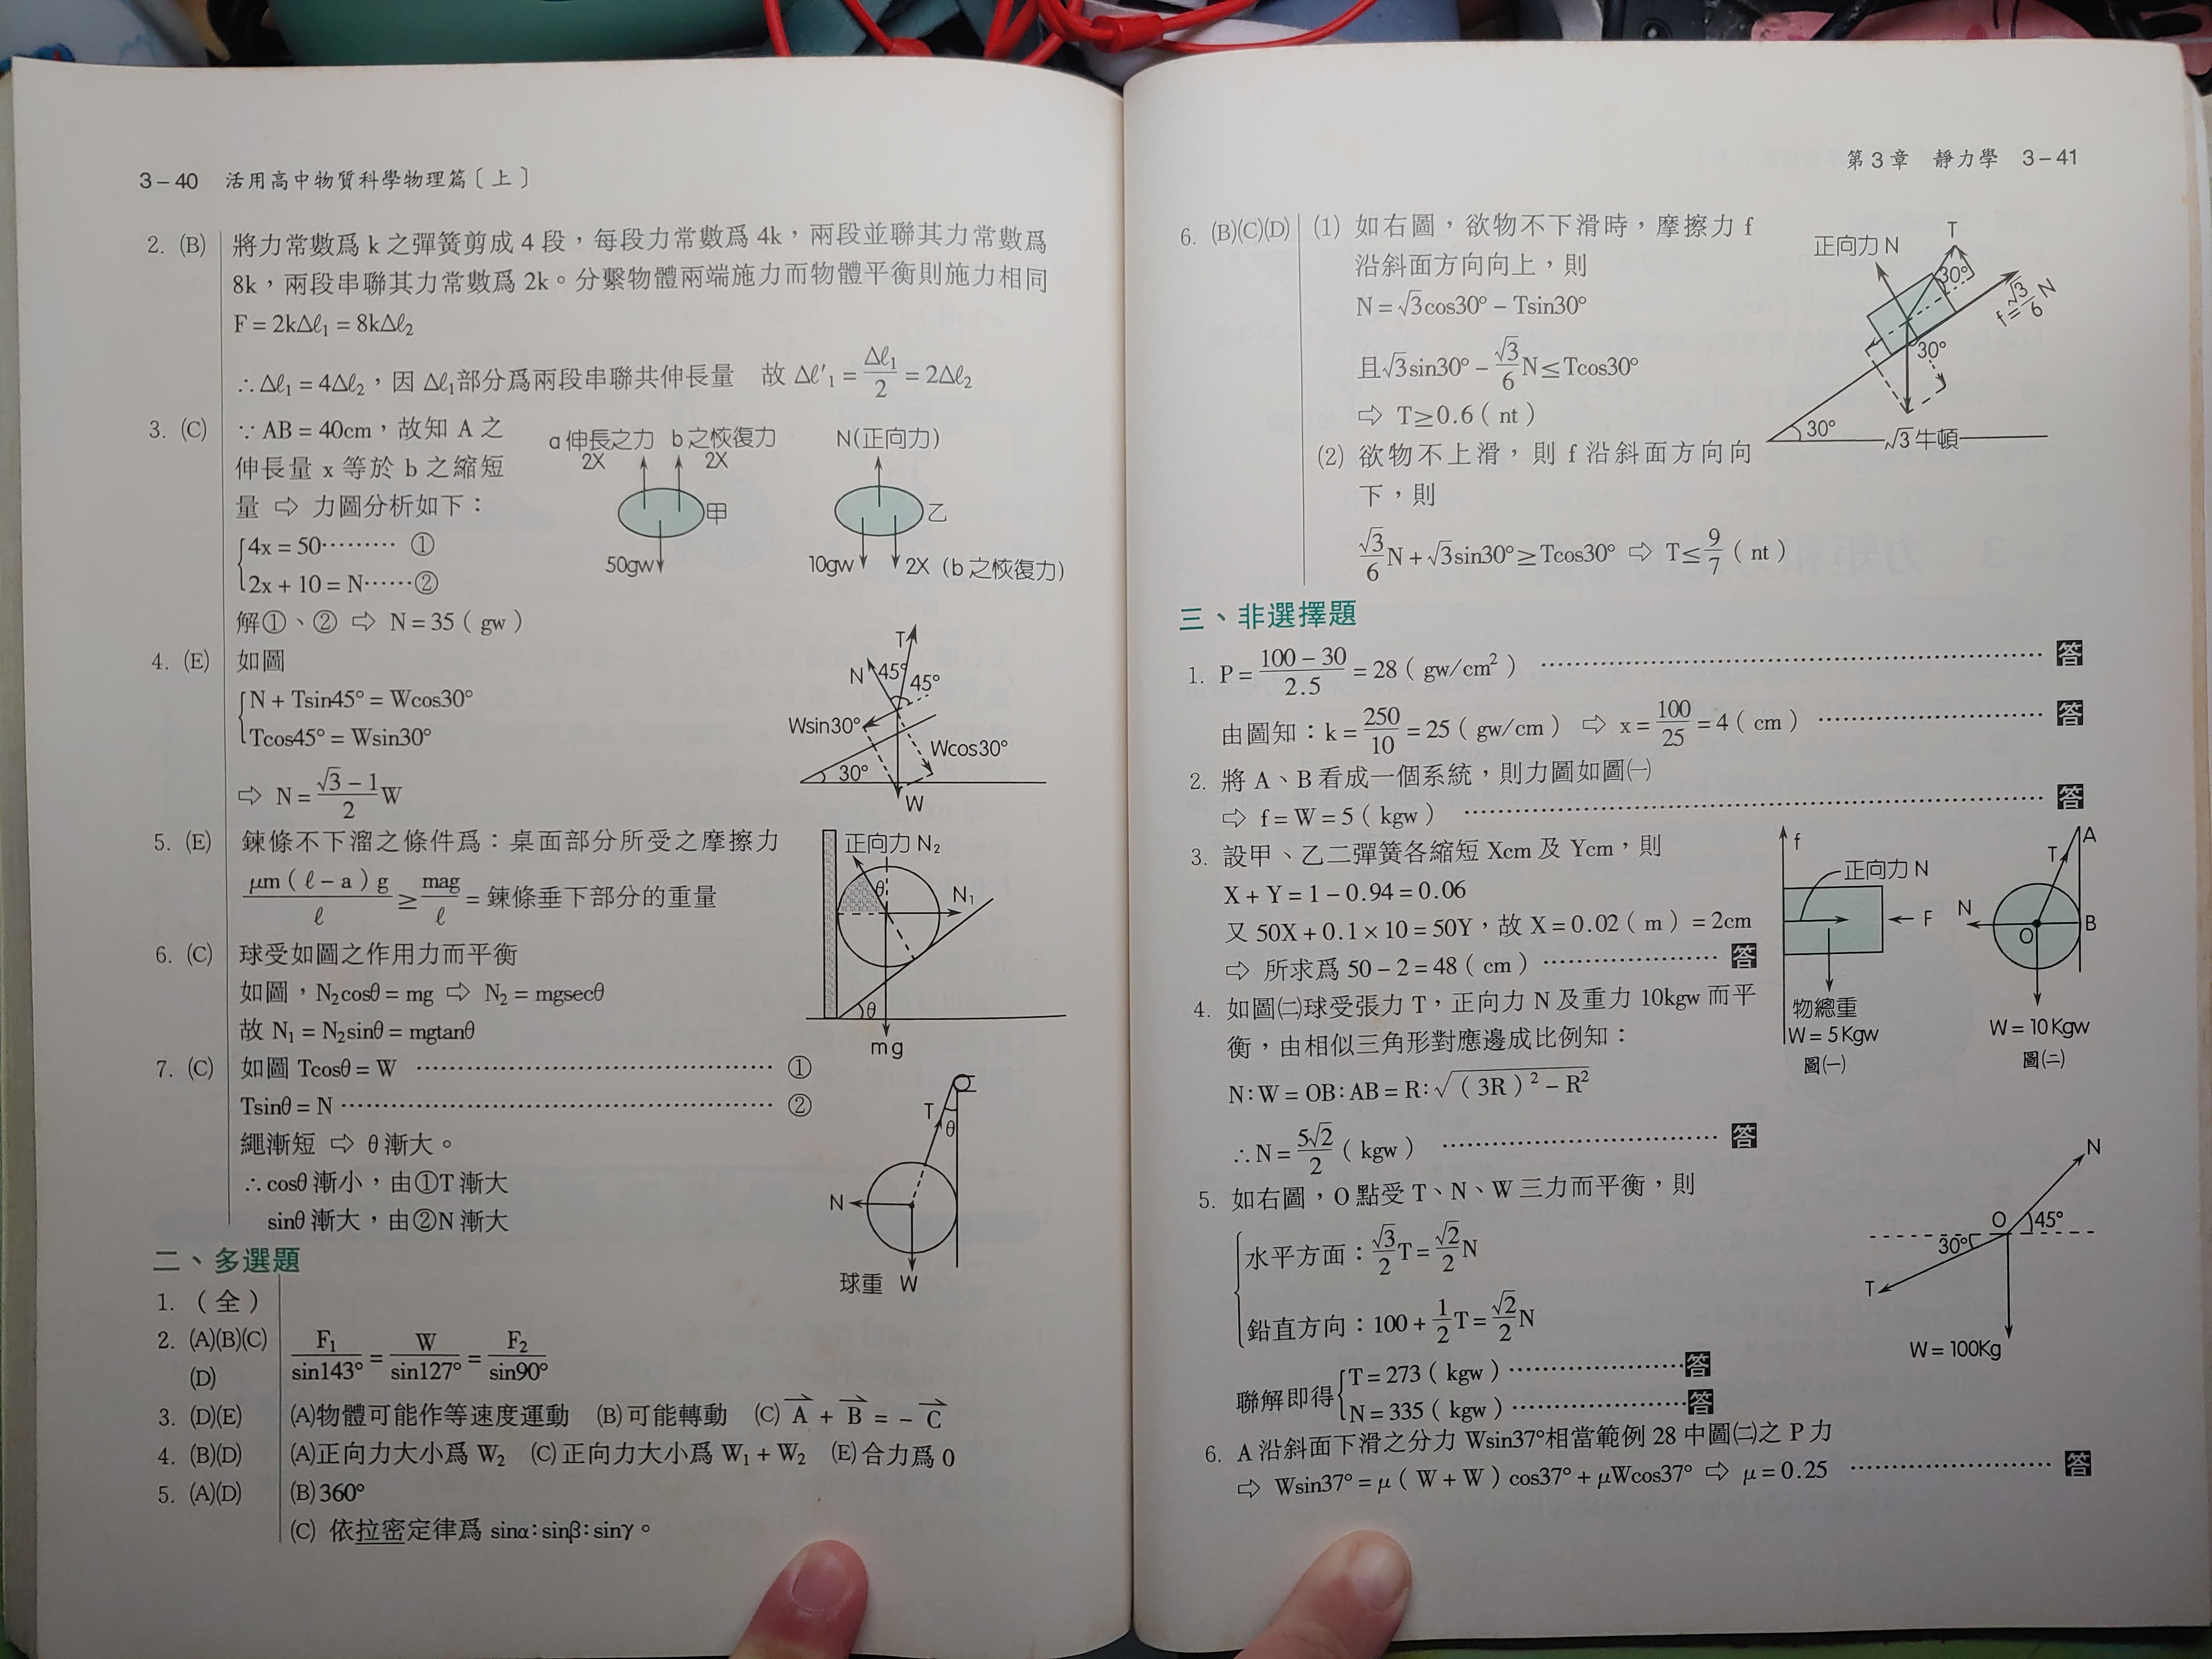 3-40 活用高中物質科學物理篇〔上〕
2. (B) 將力常數爲 k 之彈簧剪成 4 段，每段力常數爲 4k，兩段並聯其力常數爲
8k，兩段串聯其力常數爲 2k。分繫物體兩端施力而物體平衡則施力相同
F = 2kΔℓ₁ = 8kΔℓ₂
∴Δℓ₁ = 4Δℓ₂，因 Δℓ₁部分爲兩段串聯共伸長量　故 Δℓ'₁ = Δℓ₁/2 = 2Δℓ₂
3. (C) ∵AB = 40cm，故知 A 之
伸長量 x 等於 b 之縮短
量 ⇨ 力圖分析如下：
4x = 50⋯⋯⋯ ①
2x + 10 = N⋯⋯②
解①、② ⇨ N = 35 ( gw )
a 伸長之力 b 之恢復力
2X 2X
甲
50gw
N(正向力)
乙
10gw 2X (b 之恢復力)
4. (E) 如圖
N + Tsin45° = Wcos30°
Tcos45° = Wsin30°
⇨ N = (√3 − 1)/2 W
T
N 45° 45°
Wsin30°
Wcos30°
30°
W
5. (E) 鍊條不下溜之條件爲：桌面部分所受之摩擦力
μm ( ℓ − a ) g/ℓ ≥ mag/ℓ = 鍊條垂下部分的重量
6. (C) 球受如圖之作用力而平衡
如圖，N₂cosθ = mg ⇨ N₂ = mgsecθ
故 N₁ = N₂sinθ = mgtanθ
正向力 N₂
θ
N₁
θ
mg
7. (C) 如圖 Tcosθ = W ⋯⋯⋯⋯⋯⋯ ①
Tsinθ = N ⋯⋯⋯⋯⋯⋯ ②
繩漸短 ⇨ θ 漸大。
∴cosθ 漸小，由①T 漸大
sinθ 漸大，由②N 漸大
T
θ
N
球重 W
二、多選題
1. （全）
2. (A)(B)(C)(D) F₁/sin143° = W/sin127° = F₂/sin90°
3. (D)(E) (A)物體可能作等速度運動 (B)可能轉動 (C) A⃗ + B⃗ = − C⃗
4. (B)(D) (A)正向力大小爲 W₂ (C)正向力大小爲 W₁ + W₂ (E)合力爲 0
5. (A)(D) (B)360°
(C) 依拉密定律爲 sinα : sinβ : sinγ。
第 3 章 靜力學 3-41
6. (B)(C)(D) (1) 如右圖，欲物不下滑時，摩擦力 f
沿斜面方向向上，則
N = √3cos30° − Tsin30°
且√3sin30° − √3/6 N ≤ Tcos30°
⇨ T ≥ 0.6 ( nt )
(2) 欲物不上滑，則 f 沿斜面方向向
下，則
√3/6 N + √3sin30° ≥ Tcos30° ⇨ T ≤ 9/7 ( nt )
正向力 N
T
30°
f = √3/6 N
30°
30°
√3牛頓
三、非選擇題
1. P = (100 − 30)/2.5 = 28 ( gw/cm² ) ⋯⋯⋯⋯⋯⋯ 答
由圖知：k = 250/10 = 25 ( gw/cm ) ⇨ x = 100/25 = 4 ( cm ) ⋯⋯⋯⋯ 答
2. 將 A、B 看成一個系統，則力圖如圖㈠
⇨ f = W = 5 ( kgw ) ⋯⋯⋯⋯⋯⋯ 答
3. 設甲、乙二彈簧各縮短 Xcm 及 Ycm，則
X + Y = 1 − 0.94 = 0.06
又 50X + 0.1 × 10 = 50Y，故 X = 0.02 ( m ) = 2cm
⇨ 所求爲 50 − 2 = 48 ( cm ) ⋯⋯⋯⋯ 答
4. 如圖㈡球受張力 T，正向力 N 及重力 10kgw 而平
衡，由相似三角形對應邊成比例知：
N : W = OB : AB = R : √( 3R )² − R²
∴N = 5√2/2 ( kgw ) ⋯⋯⋯⋯ 答
f
正向力 N
F
物總重
W = 5Kgw
圖㈠
A
T
N
O
B
W = 10Kgw
圖㈡
5. 如右圖，O 點受 T、N、W 三力而平衡，則
水平方面：√3/2 T = √2/2 N
鉛直方向：100 + 1/2 T = √2/2 N
聯解即得 T = 273 ( kgw ) ⋯⋯⋯⋯ 答
N = 335 ( kgw ) ⋯⋯⋯⋯ 答
N
O 45°
30°
T
W = 100Kg
6. A 沿斜面下滑之分力 Wsin37°相當範例 28 中圖㈡之 P 力
⇨ Wsin37° = μ ( W + W ) cos37° + μWcos37° ⇨ μ = 0.25 ⋯⋯⋯⋯ 答